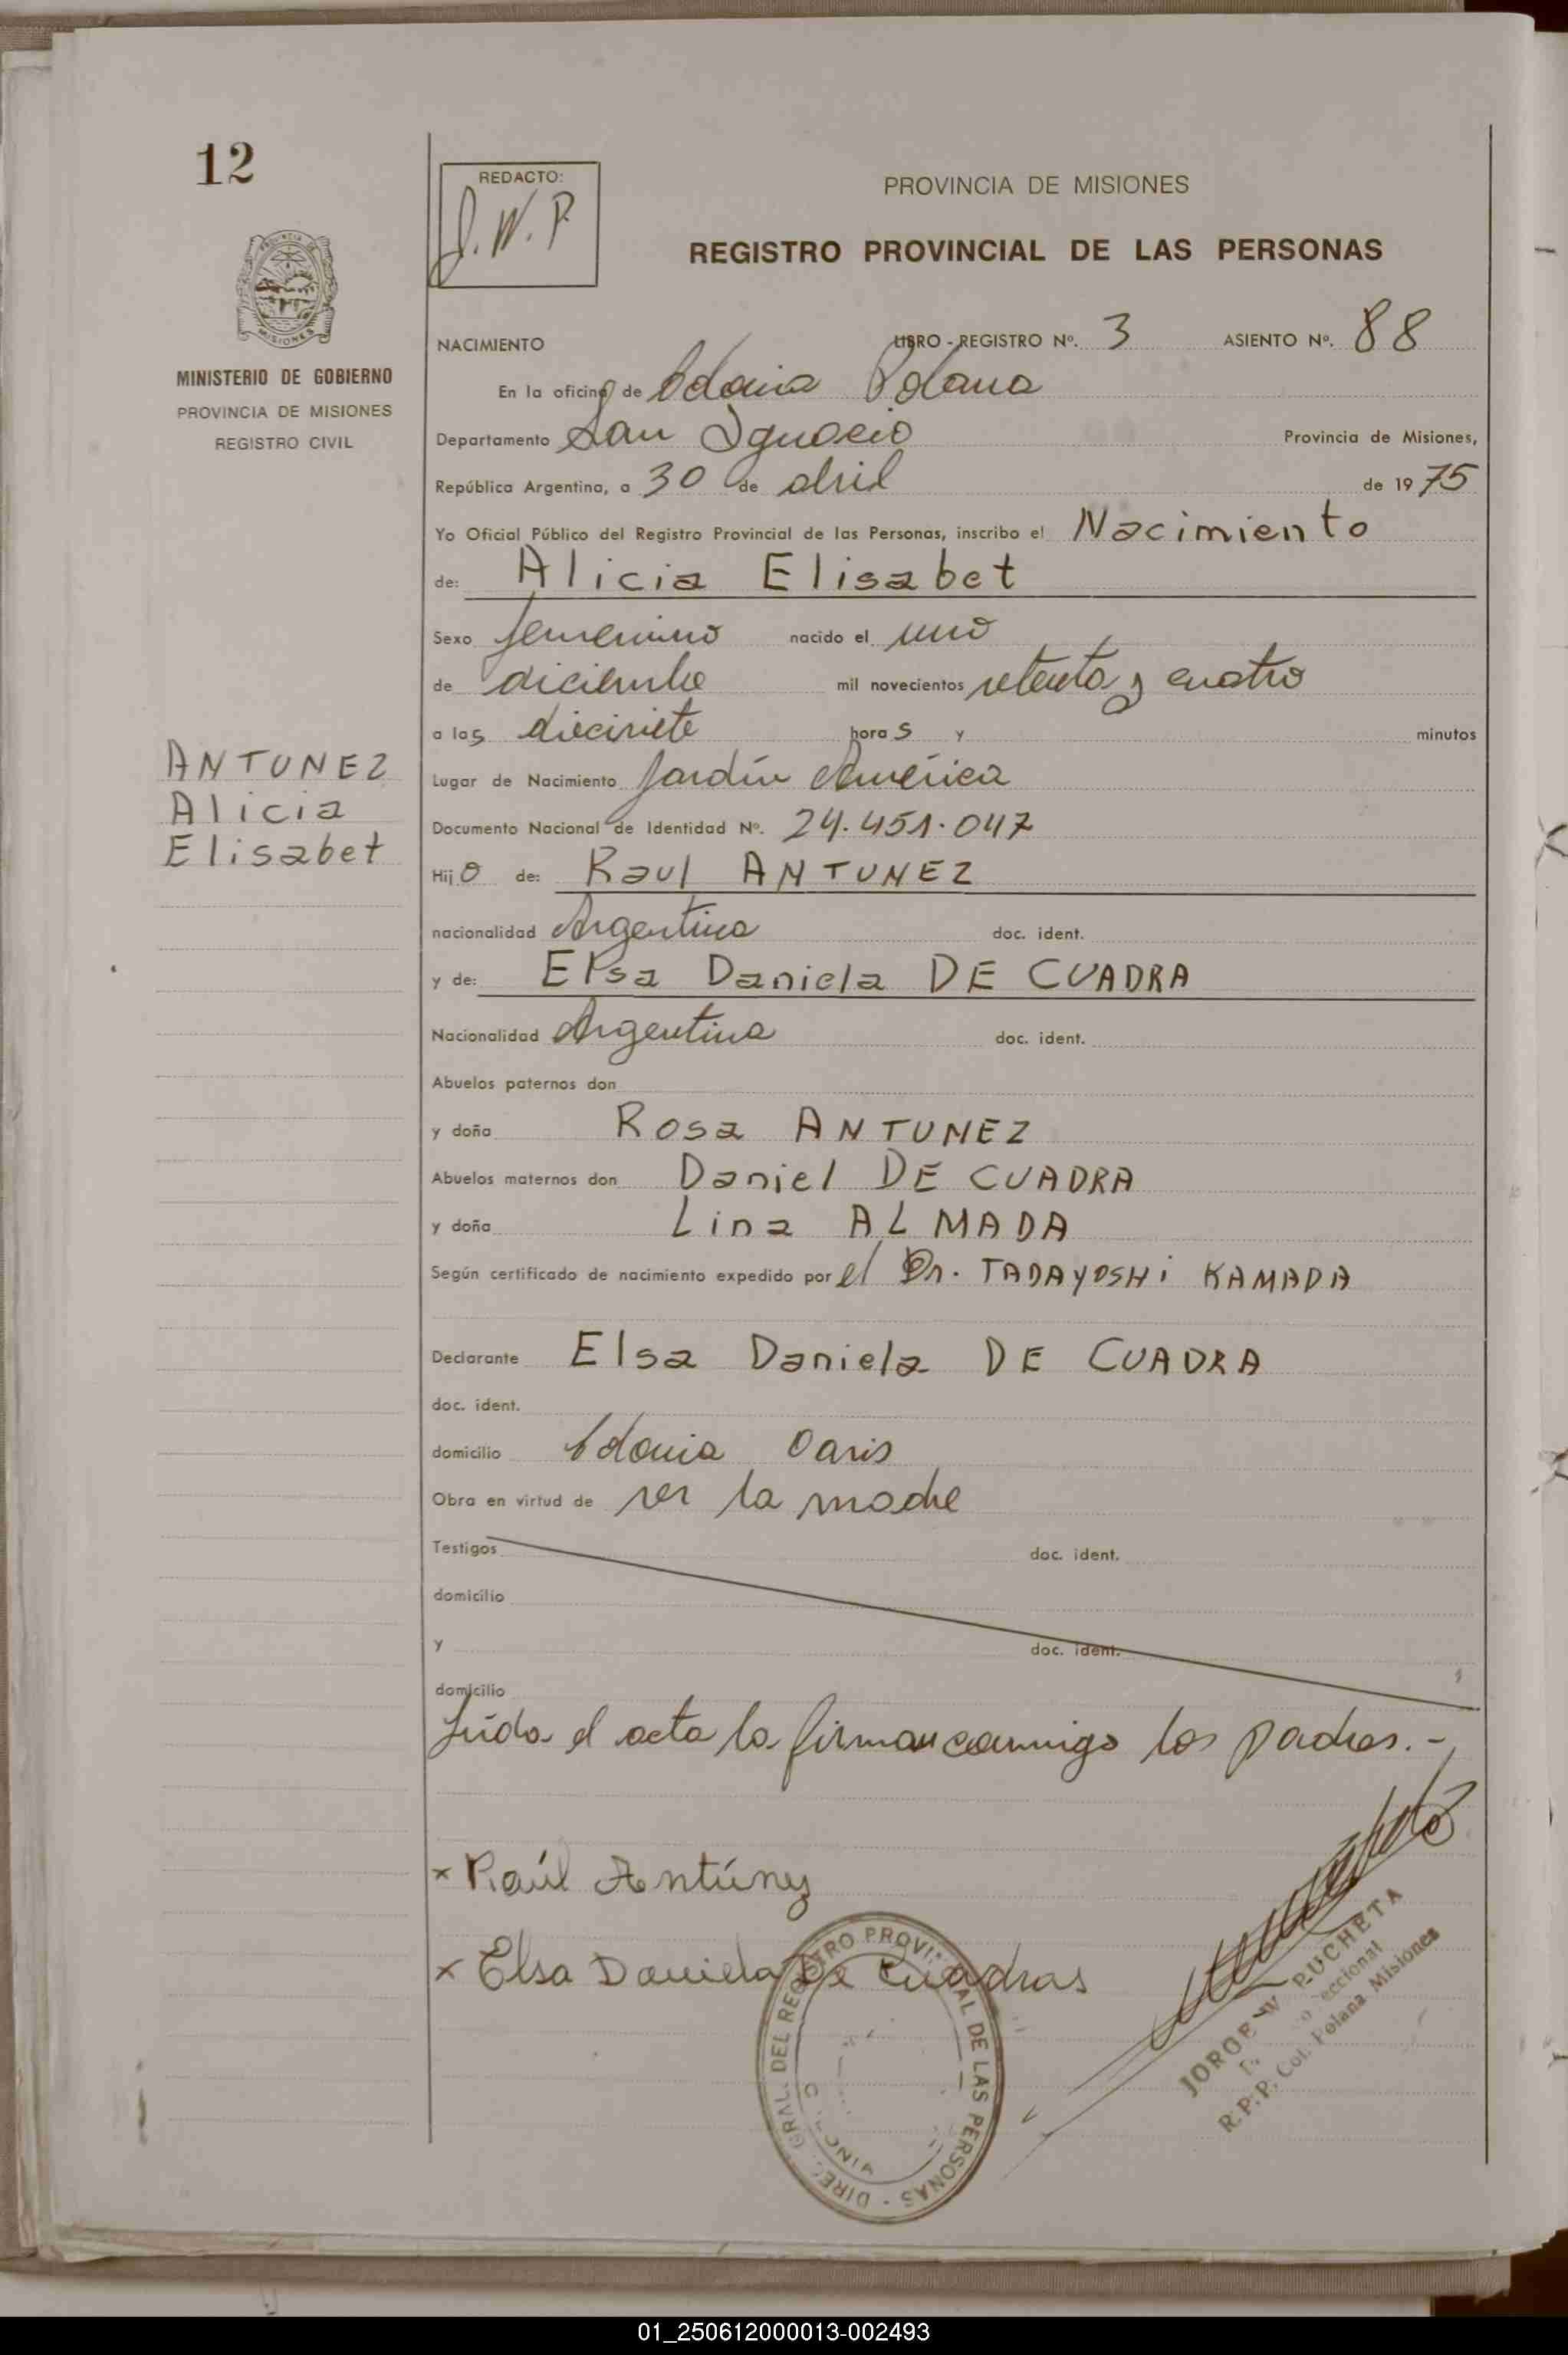 12
REDACTO:
J.W.P.
PROVINCIA DE MISIONES
REGISTRO PROVINCIAL DE LAS PERSONAS
MINISTERIO DE GOBIERNO
PROVINCIA DE MISIONES
REGISTRO CIVIL
NACIMIENTO LIBRO - REGISTRO Nº. 3 ASIENTO Nº. 88
En la oficina de Colonia Polana
Departamento San Ignacio Provincia de Misiones,
República Argentina, a 30 de abril de 1975
Yo Oficial Público del Registro Provincial de las Personas, inscribo el Nacimiento
de: Alicia Elisabet
Sexo femenino nacido el uno
de diciembre mil novecientos setenta y cuatro
a las diecisiete horas y minutos
ANTUNEZ
Alicia
Elisabet
Lugar de Nacimiento Jardín América
Documento Nacional de Identidad Nº. 24.451.047
Hijo de: Raul ANTUNEZ
nacionalidad Argentina doc. ident.
y de: Elsa Daniela DE CUADRA
Nacionalidad Argentina doc. ident.
Abuelos paternos don
y doña Rosa ANTUNEZ
Abuelos maternos don Daniel DE CUADRA
y doña Lina ALMADA
Según certificado de nacimiento expedido por el Dr. TADAYOSHi KAMADA
Declarante Elsa Daniela DE CUADRA
doc. ident.
domicilio Colonia Oasis
Obra en virtud de ser la madre
Testigos doc. ident.
domicilio
y doc. ident.
domicilio
Leída el acta la firman conmigo los padres.-
x Raúl Antúnez
x Elsa Daniela De Cuadras
DIREC. GRAL. DEL REGISTRO PROVINCIAL DE LAS PERSONAS
JORGE W PUCHETA
R.P.P. Col. Polana Misiones
01_250612000013-002493